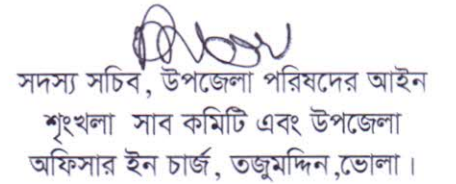 সদস্য সচিব, উপজেলা পরিষদের আইন
শৃংখলা সাব কমিটি এবং উপজেলা
অফিসার ইন চার্জ, তজুমদ্দিন,ভোলা।